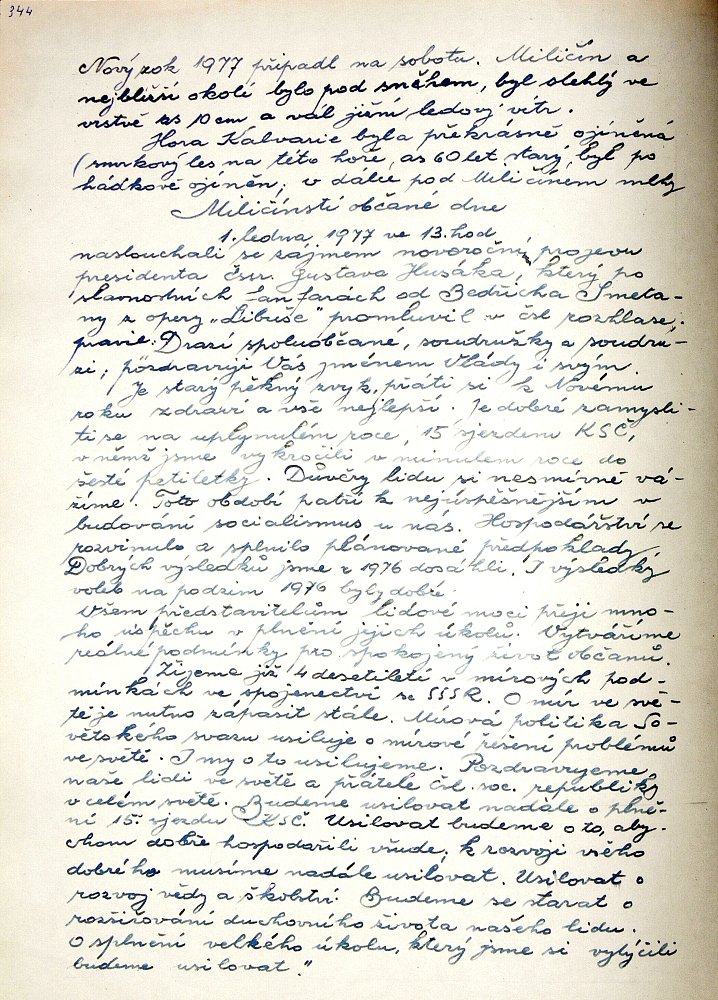 344
Nový rok 1977 připadl na sobotu. Miličín a
nejbližší okolí bylo pod sněhem, byl slehlý ve
vrstvě as 10 cm a vál jižní ledový vítr.
Hora Kalvarie byla překrásně ojíněná
(smrkový les na této hoře, as 60 let starý, byl po
hádkově ojíněn; v dálce pod Miličínem mlhy
Miličínstí občané dne
1. ledna 1977 ve 13. hod
naslouchali se zájmem novoročnímu projevu
presidenta čssr. Gustava Husáka, který po
slavnostních fanfarách od Bedřicha Smeta-
ny z opery „Libuše" promluvil v čsl rozhlase,
pravil: Drazí spoluobčané, soudružky a soudru-
zi, pozdravuji Vás jménem Vlády i svým.
Je starý pěkný zvyk, přáti si k Novému
roku zdraví a vše nejlepší. Je dobré zamysli-
ti se na uplynulém roce, 15 sjezdem KSČ,
v němž jsme vykročili v minulém roce do
šesté pětiletky. Důvěry lidu si nesmírně vá-
žíme. Toto období patří k nejúspěšnějším v
budování socialismus u nás. Hospodářství se
rozvinulo a splnilo plánované předpoklady
Dobrých výsledků jsme r 1976 dosáhli. I výsledky
voleb na podzim 1976 byly dobré.
Všem představitelům lidové moci přeji mno-
ho úspěchu v plnění jejich úkolů. Vytváříme
reálné podmínky pro spokojený život občanů.
Žijeme již 4 desetiletí v mírových pod-
mínkách ve spojenectví se SSSR. O mír ve svě-
tě je nutno zápasit stále. Mírová politika So-
větského svazu usiluje o mírové řešení problémů
ve světě. I my o to usilujeme. Pozdravujeme
naše lidi ve světě a přátele čsl. soc. republiky
v celém světě. Budeme usilovat nadále o plně-
ní 15. sjezdu KSČ. Usilovat budeme o to, aby-
chom dobře hospodařili všude, k rozvoji všeho
dobrého musíme nadále usilovat. Usilovat o
rozvoj vědy a školství. Budeme se starat o
rozšiřování duchovního života našeho lidu.
O splnění velkého úkolu, který jsme si vytýčili
budeme usilovat."